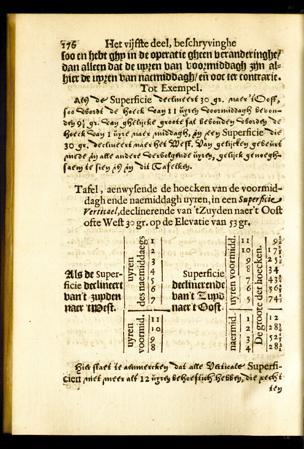 176 Het vijfste deel, beschryvinghe
soo en hebt ghy in de operatie gheen veranderinghe/
dan alleen dat de uyren van voormiddagh zijn al-
hier de uyren van naemiddagh/ en ooc ter contrarie.
Tot Exempel.
Als de Superficie declineert 30 gr. naer 't Oost,
soo wordt de hoeck van 11 uyren voormiddagh bevon-
den 9½ gr. van ghelijcke groote sal bevonden worden de
hoeck van 1 uyre naer middagh, in een Superficie die
30 gr. declineert naer het West. Van gelijcken gebeurt
mede in alle andere vervolgende uyren, gelijck genoegh-
saem te sien is in dit Tafelken.
Tafel, aenwysende de hoecken van de voormid-
dagh ende naemiddagh uyren, in een Superficie
Verticael, declinerende van 't Zuyden naer't Oost
ofte West 30 gr. op de Elevatie van 53 gr.
Als de Super-
ficie declineert
van't zuyden
naer West.
uyren
des naemiddaegs
1
2
3
4
5
6
7
uyren
voormid.
11
10
9
8
Superficie
declinerende
van't Zuyd
naer't Oost.
uyren voormidd.
11
10
9
8
7
6
5
naermid.
uyren
1
2
3
4
De groote der hoecken.
9½
12
28¼
Hier staet te aenmercken dat alle Verticale Superfi-
cien, met meer als 12 uyren behoeftich hebben, die recht
ten